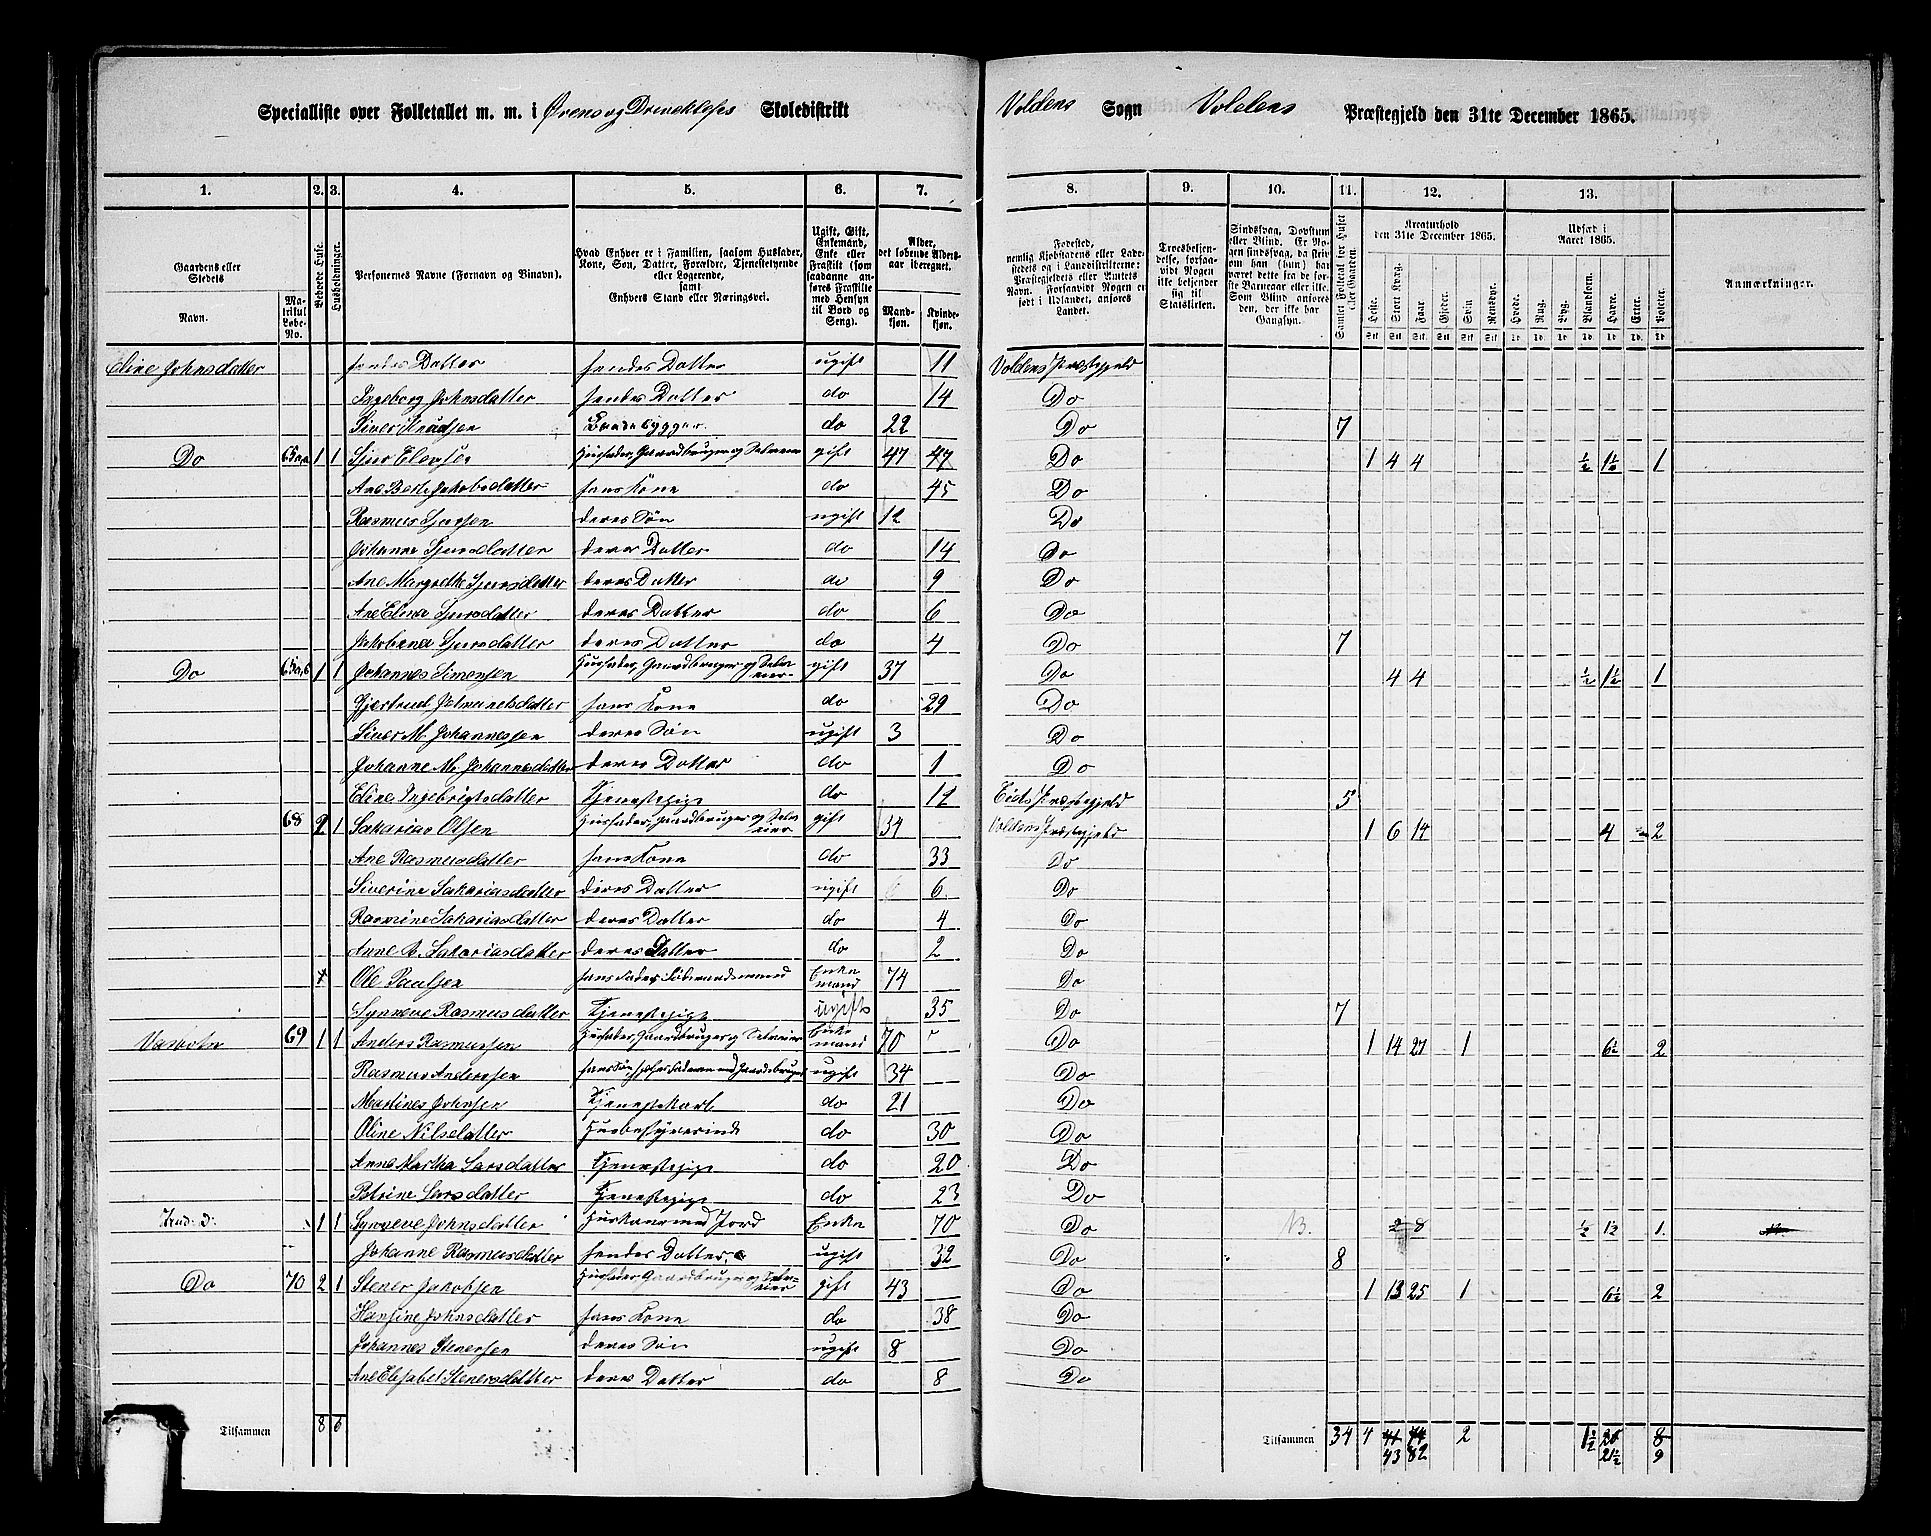 Specialliste over Folketallet m. m. i Ørens og Skoledistrikt Voldens Sogn Voldens Præstegjeld den 31te December 1865.
1. 2. 3. 4. 5. 6. 7. 8. 9. 10. 11. 12. 13.
Gaardens eller Stedets Navn. Matrikul Løbe-No. Beboede Huse. Husholdninger. Personernes Navne (Fornavn og Tilnavn). Hvad Enhver er i Familien, saasom Husfader, Kone, Søn, Datter, Forældre, Tjenestetyende eller Logerende, samt Enhvers Stand eller Næringsvei. Ugift, Gift, Enkemand, Enke eller Fraskilt (som saadanne anføres Fraskilte med Hensyn til Bord og Seng). Alder, det løbende Aldersaar iberegnet. Mandkjøn. Kvindekjøn.
Fødested, nemlig Kjøbstadens eller Ladestedets og i Landdistrikterne: Præstegjeldets eller Amtets Navn. Forsaavidt Nogen er født i Udlandet, anføres Landet. Troesbekjendelse, forsaavidt Nogen ikke bekjender sig til Statskirken. Sindssvag, Døvstum eller Blind. Samlet Folketal for Huset eller Gaarden. Kreaturhold den 31te December 1865. Heste. Stort Kvæg. Faar. Gjeder. Svin. Rensdyr. Udsæd i Aaret 1865. Hvede. Rug. Byg. Blandkorn. Havre. Erter. Poteter. Anmærkninger.
Eline Johnsdatter hendes Datter hendes Datter ugift 11 Voldens Præstegjeld
Ingeborg Johnsdatter hendes Datter do 14 Do
Siver Knudsen do 22 Do 7
Do 1 1 Husfader, Gaardbruger og Selveier gift 47 47 Do 1 4 4 ½ 1½ 1
hans Kone do 45 Do
Rasmus Sjursen deres Søn ugift 12 Do
Johanne Sjursdatter deres Datter do 14 Do
Ane Margrethe Sjursdatter deres Datter do 9 Do
Ane Elina Sjursdatter deres Datter do 6 Do
Sjursdatter deres Datter do 4 Do 7
Do 1 1 Johannes Simensen Husfader, Gaardbruger og Selveier gift 37 Do 4 4 ½ 1½ 1
hans Kone do 29 Do
Siver M. Johannessen deres Søn ugift 3 Do
Johanne M. Johannesdatter deres Datter do 1 Do
Eline Ingebrigtsdatter Tjenestepige do 12 Eids Præstegjeld 5
68 2 1 Sakarias Olsen Husfader, Gaardbruger og Selveier gift 34 Voldens Præstegjeld 1 6 14 4 2
Ane Rasmusdatter hans Kone do 33 Do
Siverine Sakariasdatter deres Datter ugift 6 Do
Rasmine Sakariasdatter deres Datter do 4 Do
Anne Sakariasdatter deres Datter do 2 Do
Ole Paulsen hans Fader Enkemand 74 Do
Synneve Rasmusdatter Tjenestepige ugift 35 Do 7
69 1 1 Anders Rasmussen Husfader, Gaardbruger og Selveier Enkemand 70 Do 1 14 27 1 6½ 2
Rasmus Anderssen ugift 34 Do
Martines Johnsen Tjenestekarl do 21 Do
Oline Nilsdatter Husbestyrerinde do 30 Do
Anne Martha Larsdatter Tjenestepige do 20 Do
Petrine Larsdatter Tjenestepige do 23 Do
1 1 Synneve Johnsdatter med Jord Enke 70 Do 2 8 ½ 1½ 1
Johanne Rasmusdatter hendes Datter ugift 32 Do 8
Do 70 2 1 Stener Jakobsen Husfader, Gaardbruger og Selveier gift 43 Do 1 13 25 1 6½ 2
Hansine Johnsdatter hans Kone do 38 Do
Johannes Stenersen deres Søn ugift 8 Do
Ane Elisabet Stenersdatter deres Datter do 8 Do
Tilsammen 8 6 Tilsammen 34 4 2 1½ 8
43 82 21½ 9